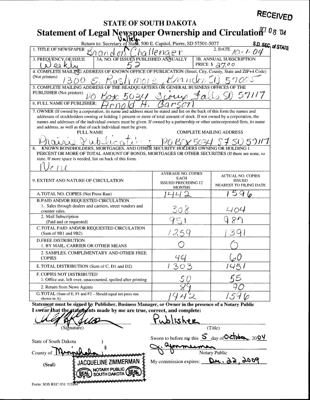 RECEIVED
'04
S.D. SEC. OF STATE
STATE OF SOUTH DAKOTA
Statement of Legal Newspaper Ownership and Circulation
Return to: Secretary of State, 500 E. Capitol, Pierre, SD 57501-5077
1. TITLE OF NEWSPAPER Brandon Valley Challenger
2. DATE 10-1-04
3. FREQUENCY OF ISSUE Weekly
3A. NO. OF ISSUES PUBLISHED ANNUALLY 52
3B. ANNUAL SUBSCRIPTION PRICE $
4. COMPLETE MAILING ADDRESS OF KNOWN OFFICE OF PUBLICATION (Street, City, County, State and ZIP+4 Code) (Not printers)
1300 E. Rushmore Brandon SD 57005
5. COMPLETE MAILING ADDRESS OF THE HEADQUARTERS OR GENERAL BUSINESS OFFICES OF THE PUBLISHER (Not printer)
PO Box 5034 Sioux Falls SD 57117
6. FULL NAME OF PUBLISHER: Arnold H. Garson
7. OWNER (If owned by a corporation, its name and address must be stated and list on the back of this form the names and addresses of stockholders owning or holding 1 percent or more of total amount of stock. If not owned by a corporation, the names and addresses of the individual owners must be given. If owned by a partnership or other unincorporated firm, its name and address, as well as that of each individual must be given.)
FULL NAME COMPLETE MAILING ADDRESS
Prairie Publications PO Box 5034 SF SD 57117
8. KNOWN BONDHOLDERS, MORTGAGES, AND OTHER SECURITY HOLDERS OWNING OR HOLDING 1 PERCENT OR MORE OF TOTAL AMOUNT OF BONDS, MORTGAGES OR OTHER SECURITIES (If there are none, so state. If more space is needed, list on back of this form.
None
9. EXTENT AND NATURE OF CIRCULATION
AVERAGE NO. COPIES EACH ISSUED PRECEDING 12 MONTHS
ACTUAL NO. COPIES ISSUED NEAREST TO FILING DATE
A. TOTAL NO. COPIES (Net Press Run) 1442 1596
B. PAID AND/OR REQUESTED CIRCULATION
1. Sales through dealers and carriers, street vendors and counter sales. 308 404
2. Mail Subscription (Paid and or requested) 951 987
C. TOTAL PAID AND/OR REQUESTED CIRCULATION (Sum of 9B1 and 9B2) 1259 1391
D. FREE DISTRIBUTION
1. BY MAIL, CARRIER OR OTHER MEANS 0 0
2. SAMPLES, COMPLIMENTARY AND OTHER FREE COPIES 44 60
E. TOTAL DISTRIBUTION (Sum of C, D1 and D2) 1303 1451
F. COPIES NOT DISTRIBUTED
1. Office use, left over, unaccounted, spoiled after printing 50 55
2. Return from News Agents 89 90
G. TOTAL (Sum of E, F1 and F2 - Should equal net press run shown in A) 1442 1596
Statement must be signed by Publisher, Business Manager, or Owner in the presence of a Notary Public
I swear that the statements made by me are true, correct, and complete:
Publisher
(Signature) (Title)
State of South Dakota )
Sworn to before me this 5 day of October, 2004
County of Minnehaha )
(Seal)
JACQUELINE ZIMMERMAN
NOTARY PUBLIC
SOUTH DAKOTA
J Zimmerman
Notary Public
My commission expires: Dec. 22, 2009